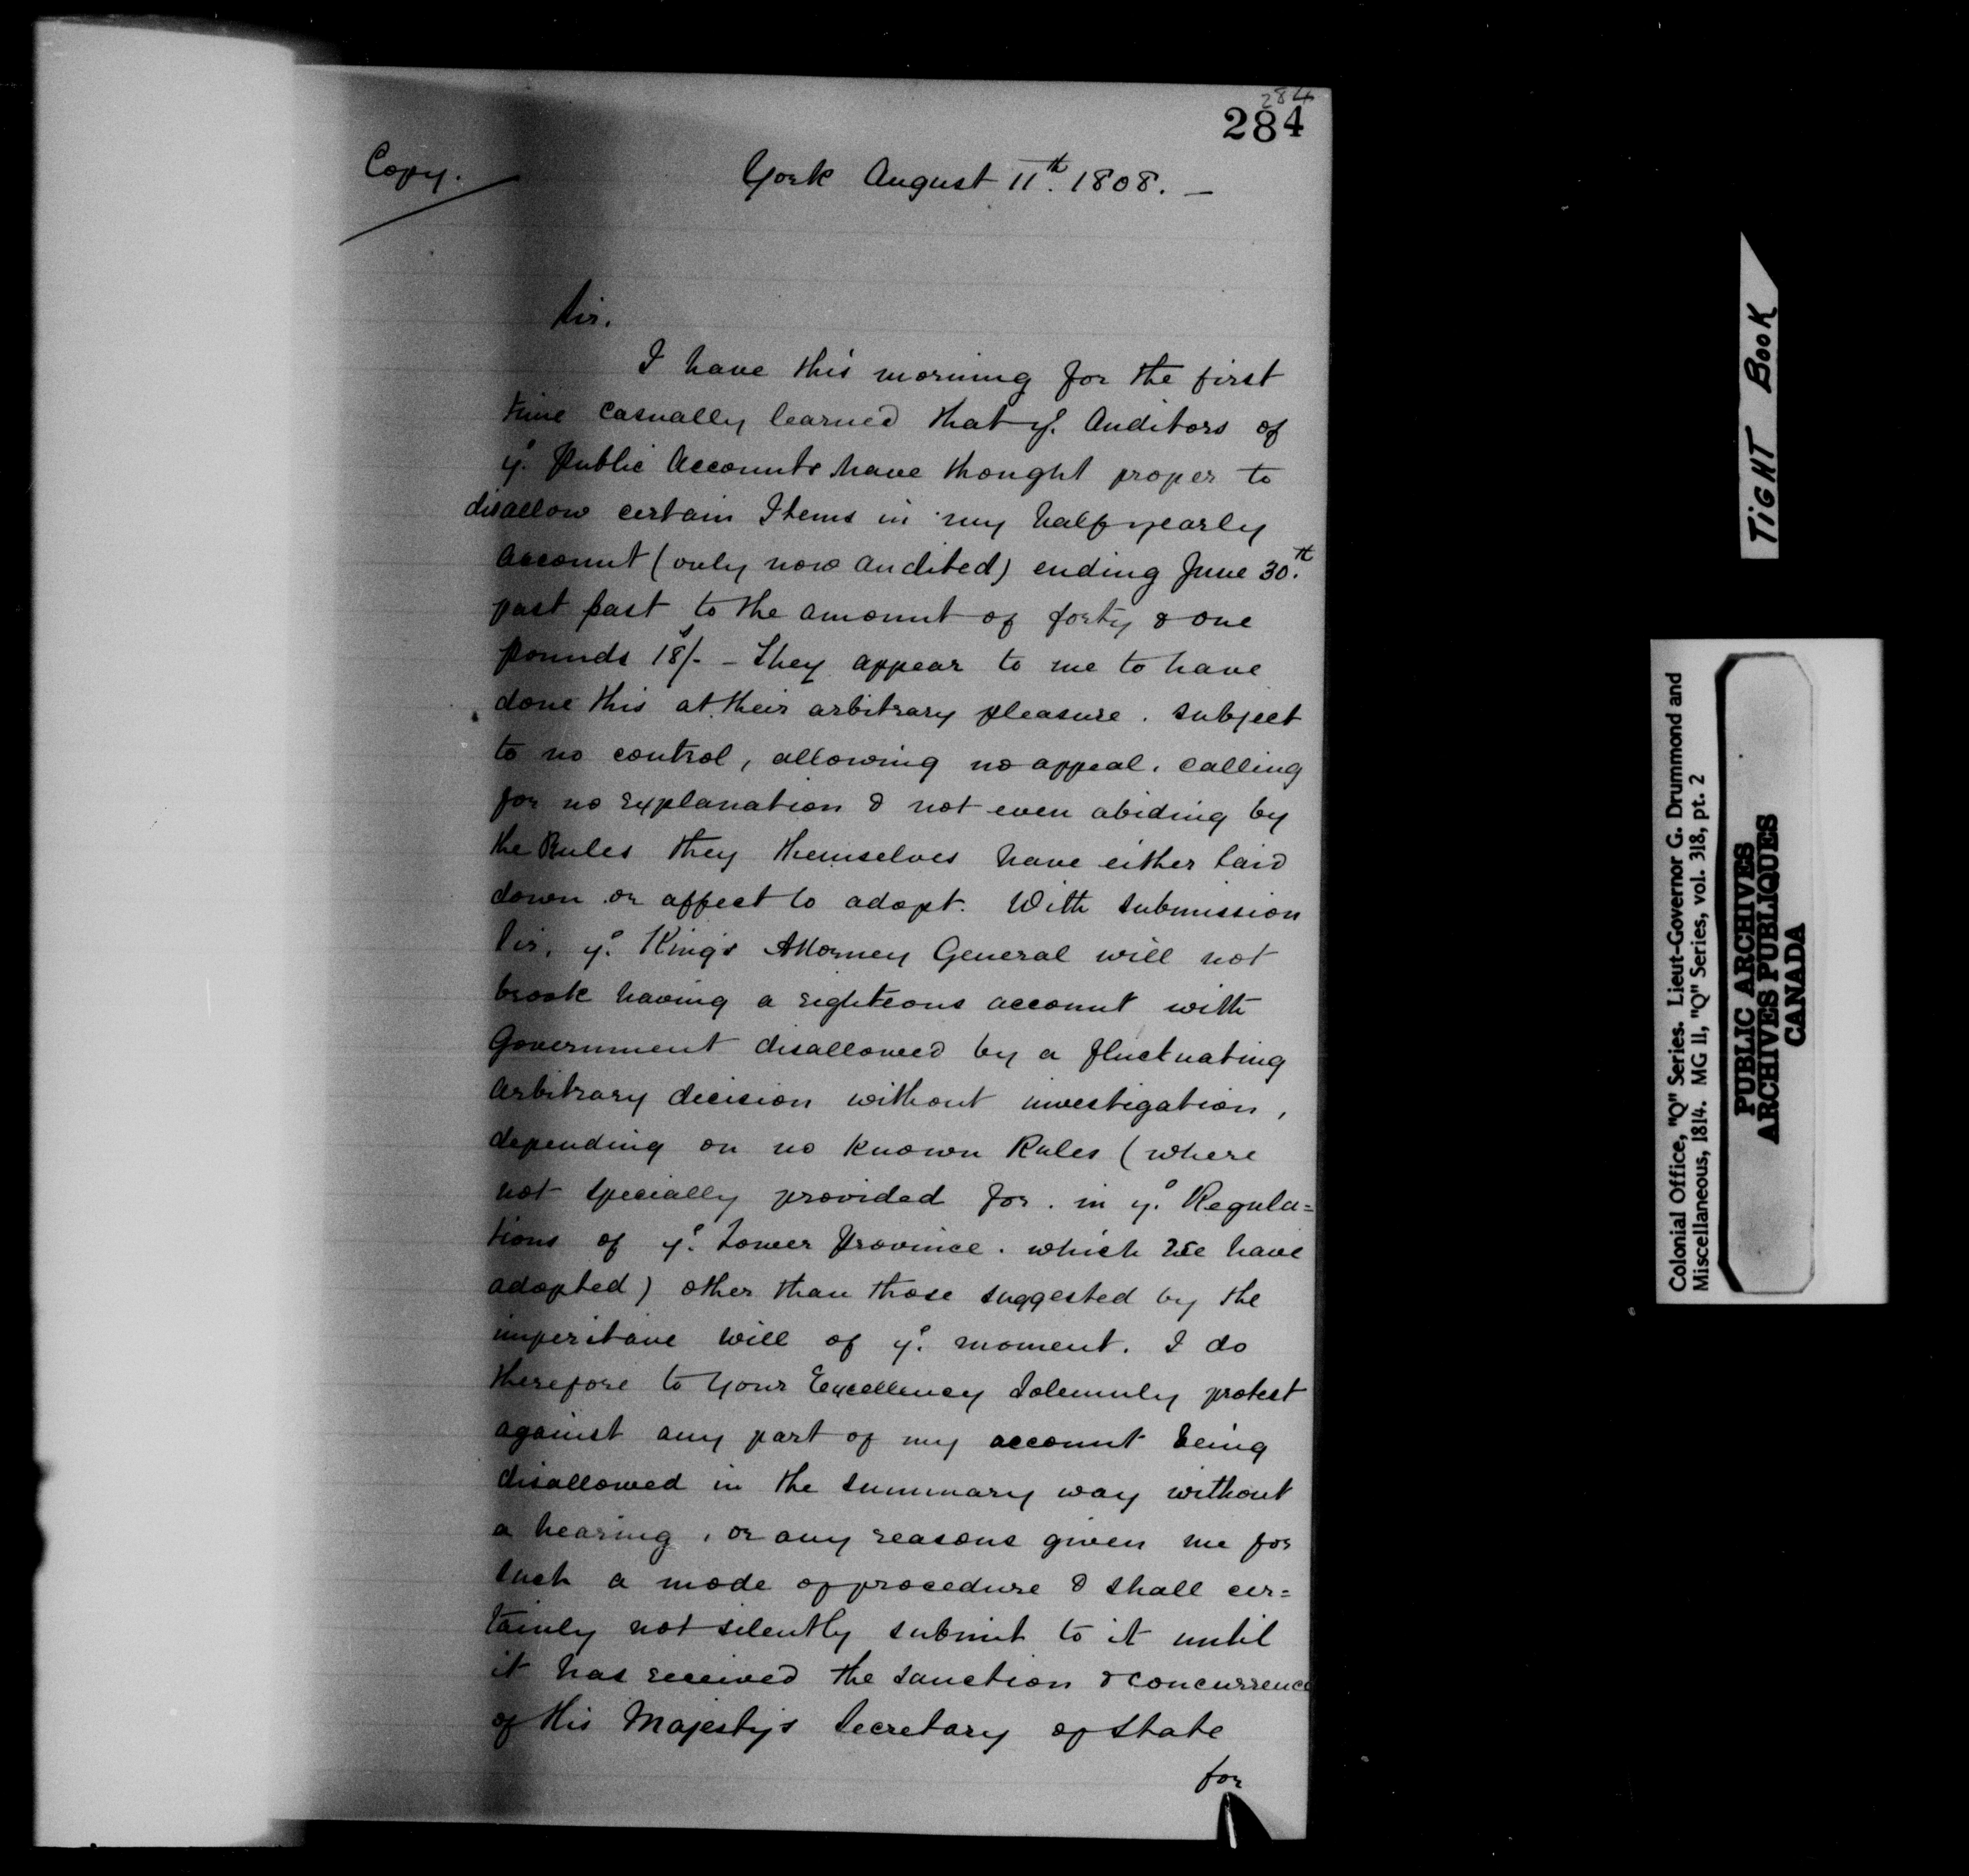 284
284
Copy.
York August 11th. 1808. —
Sir.
I have this morning for the first
time casually learned that ye. Auditors of
ye. Public Accounts have thought proper to
disallow certain Items in my half yearly
account (only now audited) ending June 30.th
past past to the amount of forty & one
pounds 18s/- — They appear to me to have
done this at their arbitrary pleasure. subject
to no control, allowing no appeal. calling
for no explanation & not even abiding by
the Rules they themselves have either laid
down or affect to adopt. With submission
Sir, ye. King's Attorney General will not
brook having a righteous account with
Government disallowed by a fluctuating
arbitrary decision without investigation,
depending on no known Rules (where
not specially provided for. in ye. Regula=
tions of ye. Lower Province. which We have
adopted) other than those suggested by the
imperitave will of ye. moment. I do
therefore to Your Excellency Solemnly protest
against any part of my account being
disallowed in the summary way without
a hearing, or any reasons given me for
such a mode of procedure & shall cer=
tainly not silently submit to it until
it has received the sanction & concurrence
of His Majesty's Secretary of State
for
TIGHT BOOK
Colonial Office, "Q" Series. Lieut-Governor G. Drummond and
Miscellaneous, 1814. MG 11, "Q" Series, vol. 318, pt. 2
PUBLIC ARCHIVES
ARCHIVES PUBLIQUES
CANADA